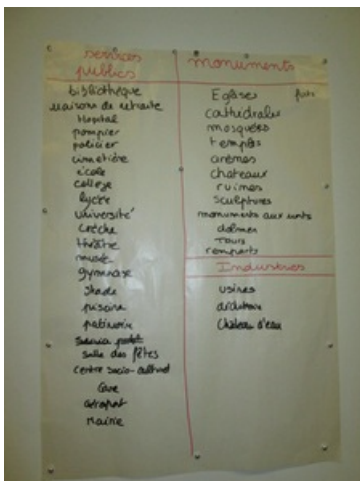 services
publics
bibliothèque
maisons de retraite
Hopital
pompier
policier
cimetière
école
collège
lycée
université
crèche
théâtre
musée
gymnase
stade
piscine
patinoire
salle des fêtes
centre socio-culturel
Gare
aéroport
Mairie
monuments
Eglises
cathédrales
mosquées
temples
arènes
chateaux
ruines
sculptures
monuments aux morts
dolmen
Tours
remparts
Industries
usines
château d'eau